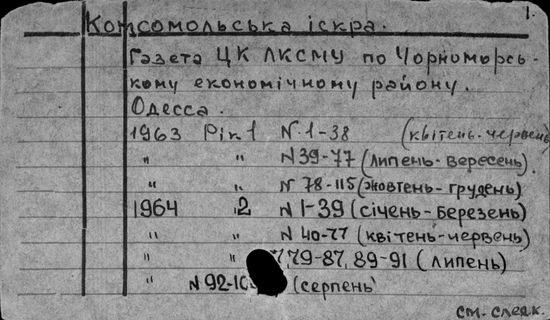 1.
Комсомольська іскра.
Газета ЦК ЛКСМУ по Чорноморсь-
кому економічному району.
Одесса.
1963 Рік 1 N. 1-38 (квітень-червень
" " N 39-77 (липень-вересень)
" " N 78-115 (жовтень-грудень)
1964 2 N 1-39 (січень-березень)
" " N 40-77 (квітень-червень)
" " 79-87, 89-91 (липень)
N 92-10 (серпень
см. след.